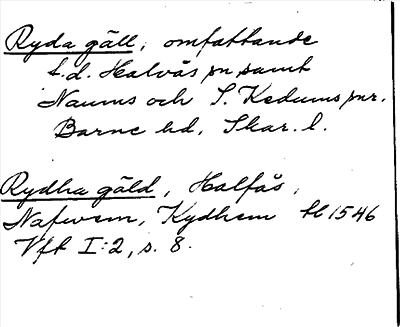 Ryda gäll, omfattande
f.d. Halvås sn samt
Naums och S. Kedums snr.
Barne hd, Skar. l.
Rydha gäld, Halfås,
Nafwem, Kydhem tl 1546
Vft I:2, s. 8.